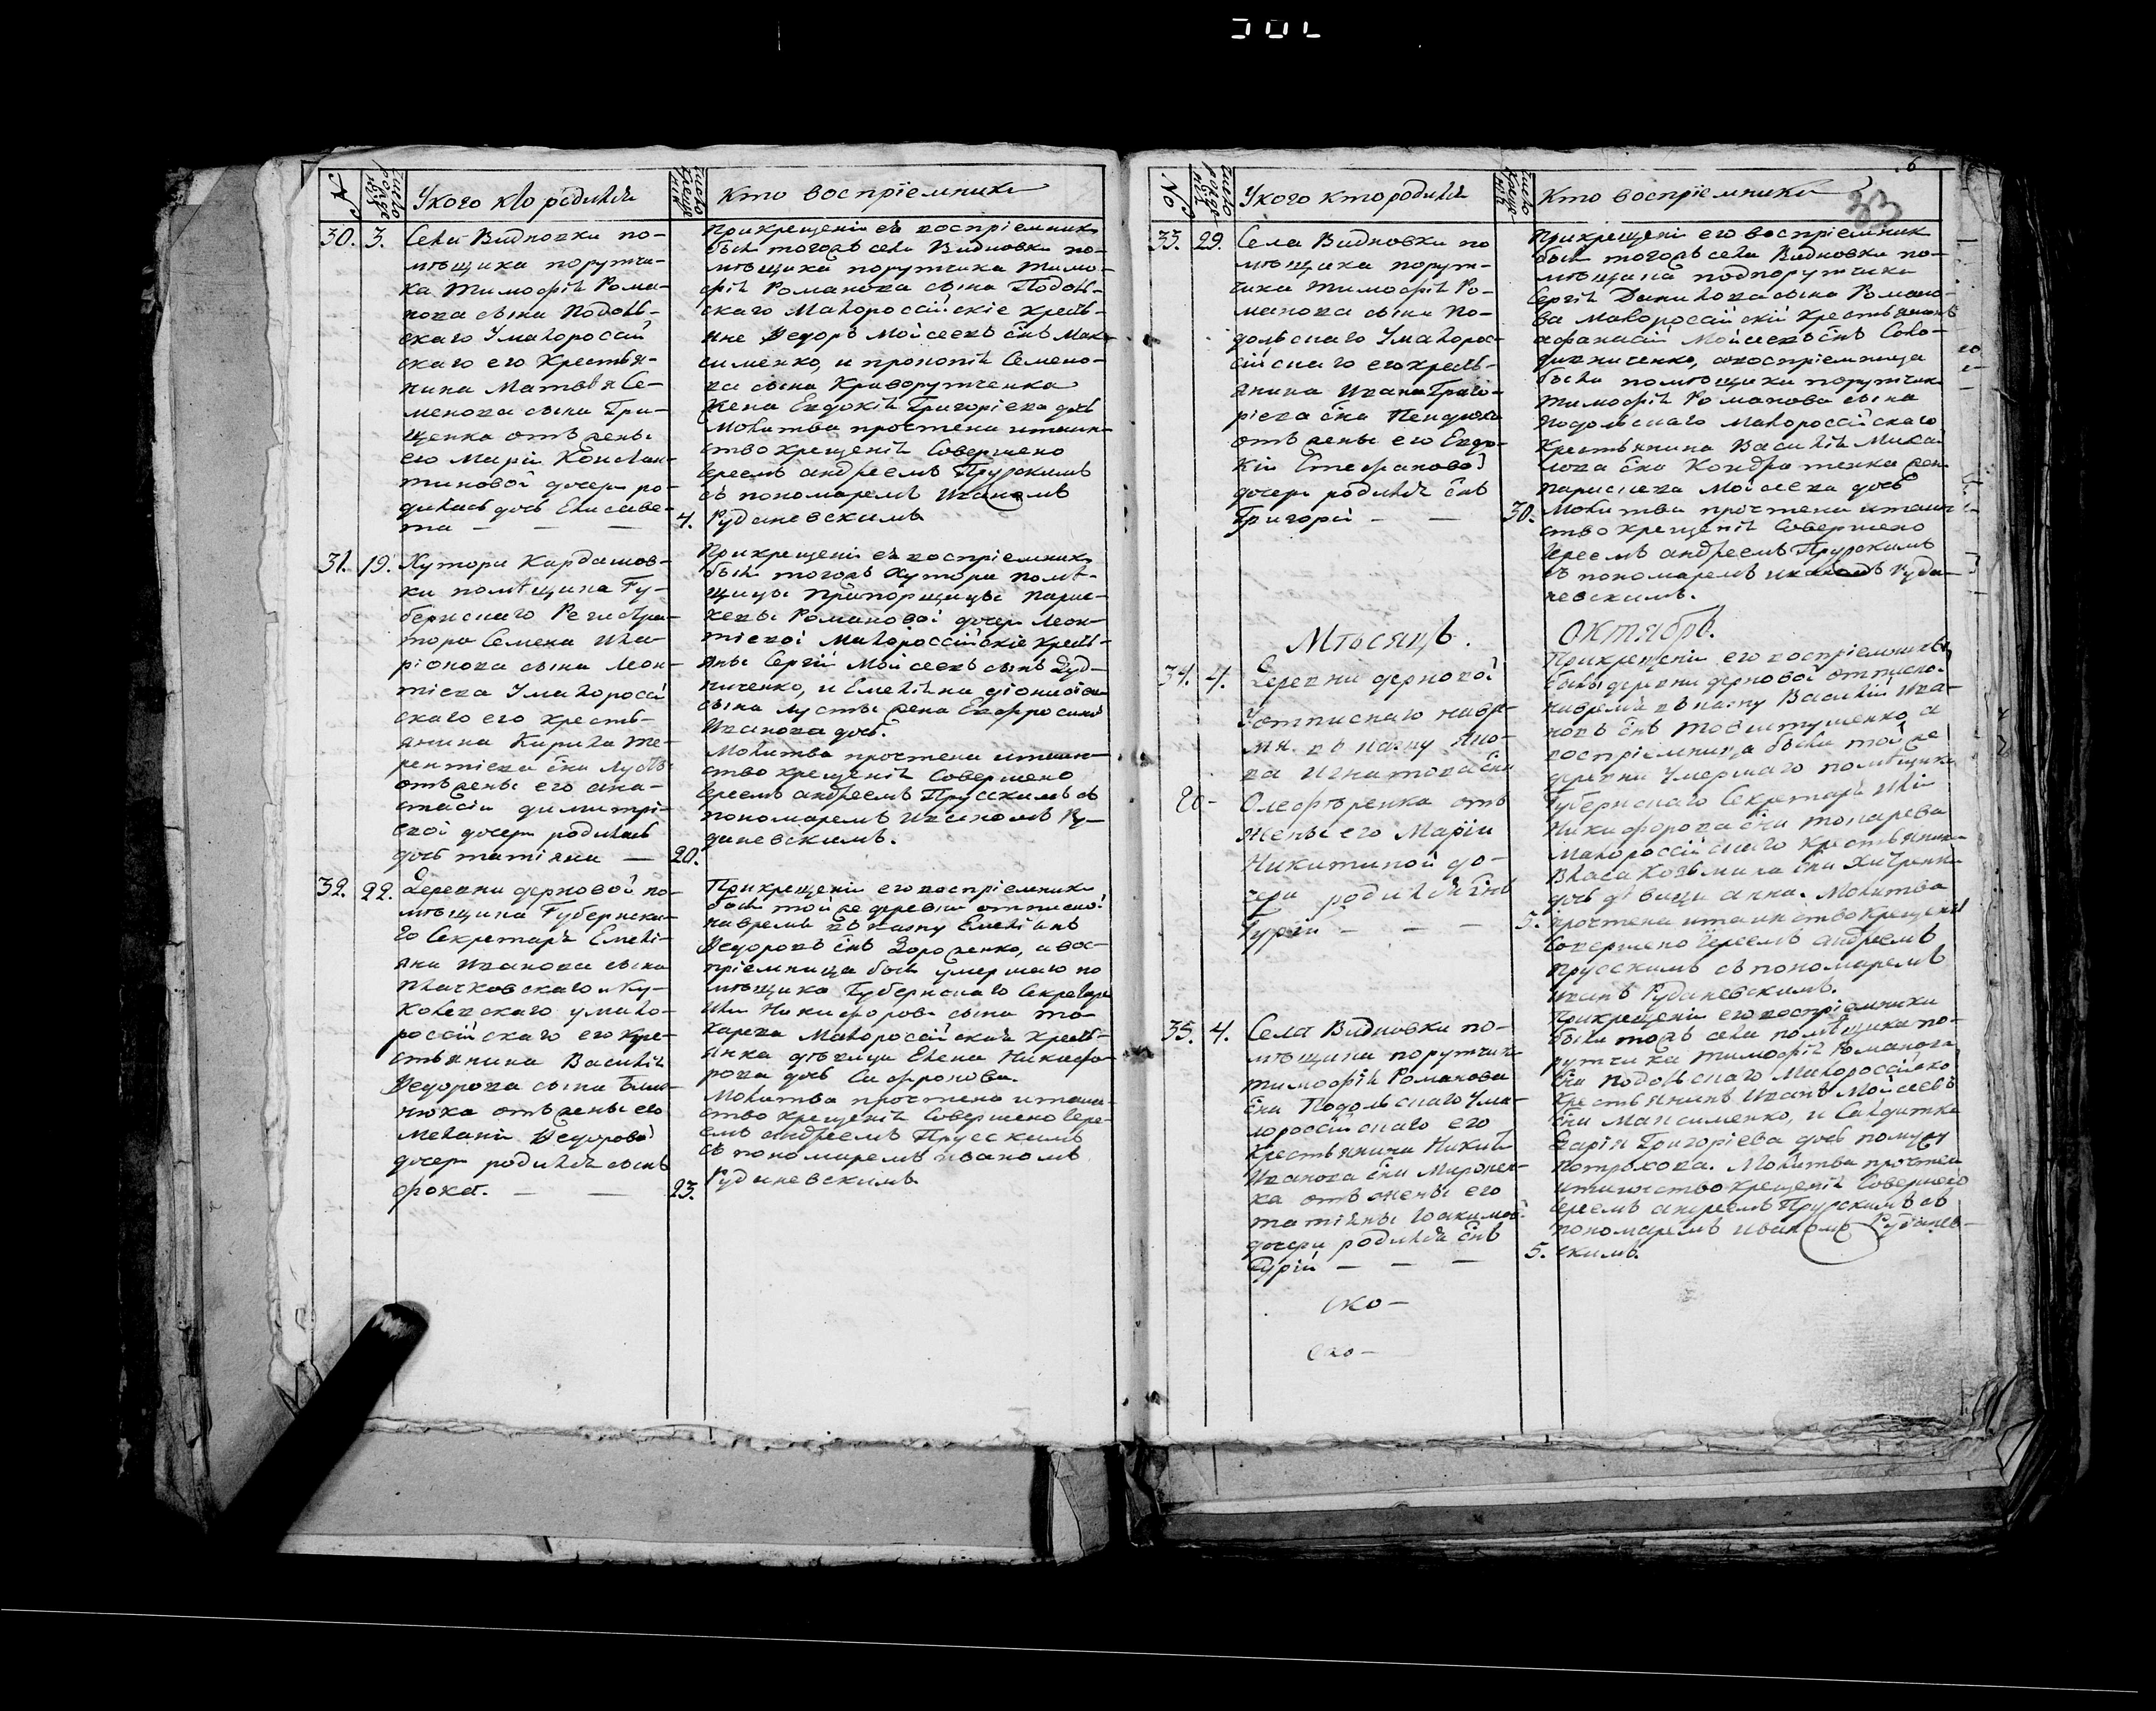 №
число рожденія
У кого кто родился
число крещенія
Кто воспріемники
30. 3.
Села Видновки по-
мѣщика порутчи-
ка Тимофѣя Рома-
нова сына Подоль-
скаго Умалороссій
скаго его крестья-
нина Матвѣя Се-
менова сына Гри-
щенка отъ жены
его Маріи Констан-
тиновой дочери ро-
дилась дочь Елисаве-
та — — — 4.
При крещеніи ея воспріемники
были тогожъ села Видновки по-
мѣщика порутчика Тимо-
фѣя Романова сына Подоль-
скаго Малороссійскіе крестья-
яне Ѳедоръ Мойсеевъ снъ Мак-
сименко, и Прокопія Семено-
ва сына Криворутченка
жена Евдокія Григоріева дочь
Молитва прочтена итаин-
ство крещенія Совершено
Іереемъ Андреемъ Прускимъ
съ пономаремъ Иваномъ
Руданевскимъ
31. 19.
Хутора Кардашов-
ки помѣщика Гу-
бернскаго Регистра-
тора Семена Ила-
ріонова сына Леон-
тіева Умалороссій
скаго его кресть-
янина Кирила Те-
рентіева сна Лусты
отъ жены его Ана-
стасіи Димитрі-
евой дочери родилась
дочь Татіана — 20.
При крещеніи ея воспріемники
были тогожъ Хутора помѣ-
щицы Прапорщицы Парас-
кевы Романовой дочери Леон-
тіевой Малороссійскіе кресть-
яне Сергій Мойсеевъ сынъ Дуд-
ниченко, и Емеліяна Діонисіева
сына Лусты жена Евфросинія
Иванова дочь.
Молитва прочтена итаин-
ство крещенія Совершено
Іереемъ Андреемъ Прускимъ съ
пономаремъ Иваномъ Ру-
даневскимъ.
32. 22.
Деревни Дерновой по-
мѣщика Губернска-
го Секретаря Емелі-
яна Иванова сына
Плачковскаго и Ку-
колевскаго умало-
россійскаго его кре-
стьянина Василія
Ѳедорова сына
отъ жены его
Меланіи Ѳедоровой
дочери родился сынъ
Фока. — — 23.
При крещеніи его воспріемники
были тойже деревни отписной
навремя въ казну Емеліянъ
Ѳедоровъ снъ Дороженко, а вос-
пріемница была умершаго по
мѣщика Губернскаго Секретаря
Ильи Никифорова сына То-
карева Малороссійская кресть-
янка дѣвица Елена Никифо-
рова дочь Сафронова.
Молитва прочтена итаин-
ство крещенія Совершено Іере-
емъ Андреемъ Прускимъ
съ пономаремъ Иваномъ
Руданевскимъ
33
№
число рожденія
У кого кто родился
число крещенія
Кто воспріемники
33. 29.
Села Видновки по
мѣщика порут-
чика Тимофѣя Ро-
манова сына По-
дольскаго Умалорос-
сійскаго его кресть-
янина Ивана Григо-
ріева сна
отъ жены его Евдо-
кіи Стефановой
дочери родился снъ
Григорій — — 30.
При крещеніи его воспріемник
былъ тогожъ села Видновки по-
мѣщика подпорутчика
Сергѣя Данилова сына Романо-
ва Малороссійскій крестьянинъ
Афанасій Мойсеевъ снъ Соло-
духниченко, авоспріемница
была помѣщика порутчика
Тимофѣя Романова сына
Подольскаго Малороссійскаго
крестьянина Василія Михай-
лова сна Кондратенка жена
Парасkева Мойсеева дочь
Молитва прочтена итаин-
ство крещенія Совершено
Іереемъ Андреемъ Прускимъ
съ пономаремъ Иваномъ Руда-
невскимъ.
Мѣсяцъ. Октябрь.
34. 4.
Деревни Дерновой
У отписнаго навре-
мя въ казну Яко-
ва Игнатова сна
Олефѣренка отъ
жены его Маріи
Никитиной до-
чери родился снъ
Гурій — — — 5.
При крещеніи его воспріемники
были деревни Дерновой отписной
навремя въ казну Василій Ива-
новъ снъ а
воспріемница была тойже
деревни Умершаго помѣщика
Губернскаго Секретаря Ильи
Никифорова сна Токарева
Малороссійскаго крестьянина
Власа Козьмина сна
дочь дѣвица Анна. Молитва
прочтена итаинство крещенія
Совершено Іереемъ Андреемъ
Прускимъ съ пономаремъ
Иванъ Руданевскимъ.
35. 4.
Села Видновки по-
мѣщика порутчика
Тимофѣя Романова
сна Подольскаго Ума-
лороссійскаго его
крестьянина Никиты
Иванова сна Миронен-
ка отъ жены его
Татіяны Іоакимовой
дочери родился снъ
Гурій — — — 5.
При крещеніи его воспріемники
были тогожъ села помѣщика по-
рутчика Тимофѣя Романова
сна Подольскаго Малороссійской
крестьянинъ Иванъ Мойсеевъ
снъ Максименко, и Солдатка
Дарія Григоріева дочь помужу
Петрохова. Молитва прочтена
итаинство крещенія Совершено
Іереемъ Андреемъ Прускимъ съ
пономаремъ Иваномъ Руданев-
скимъ.